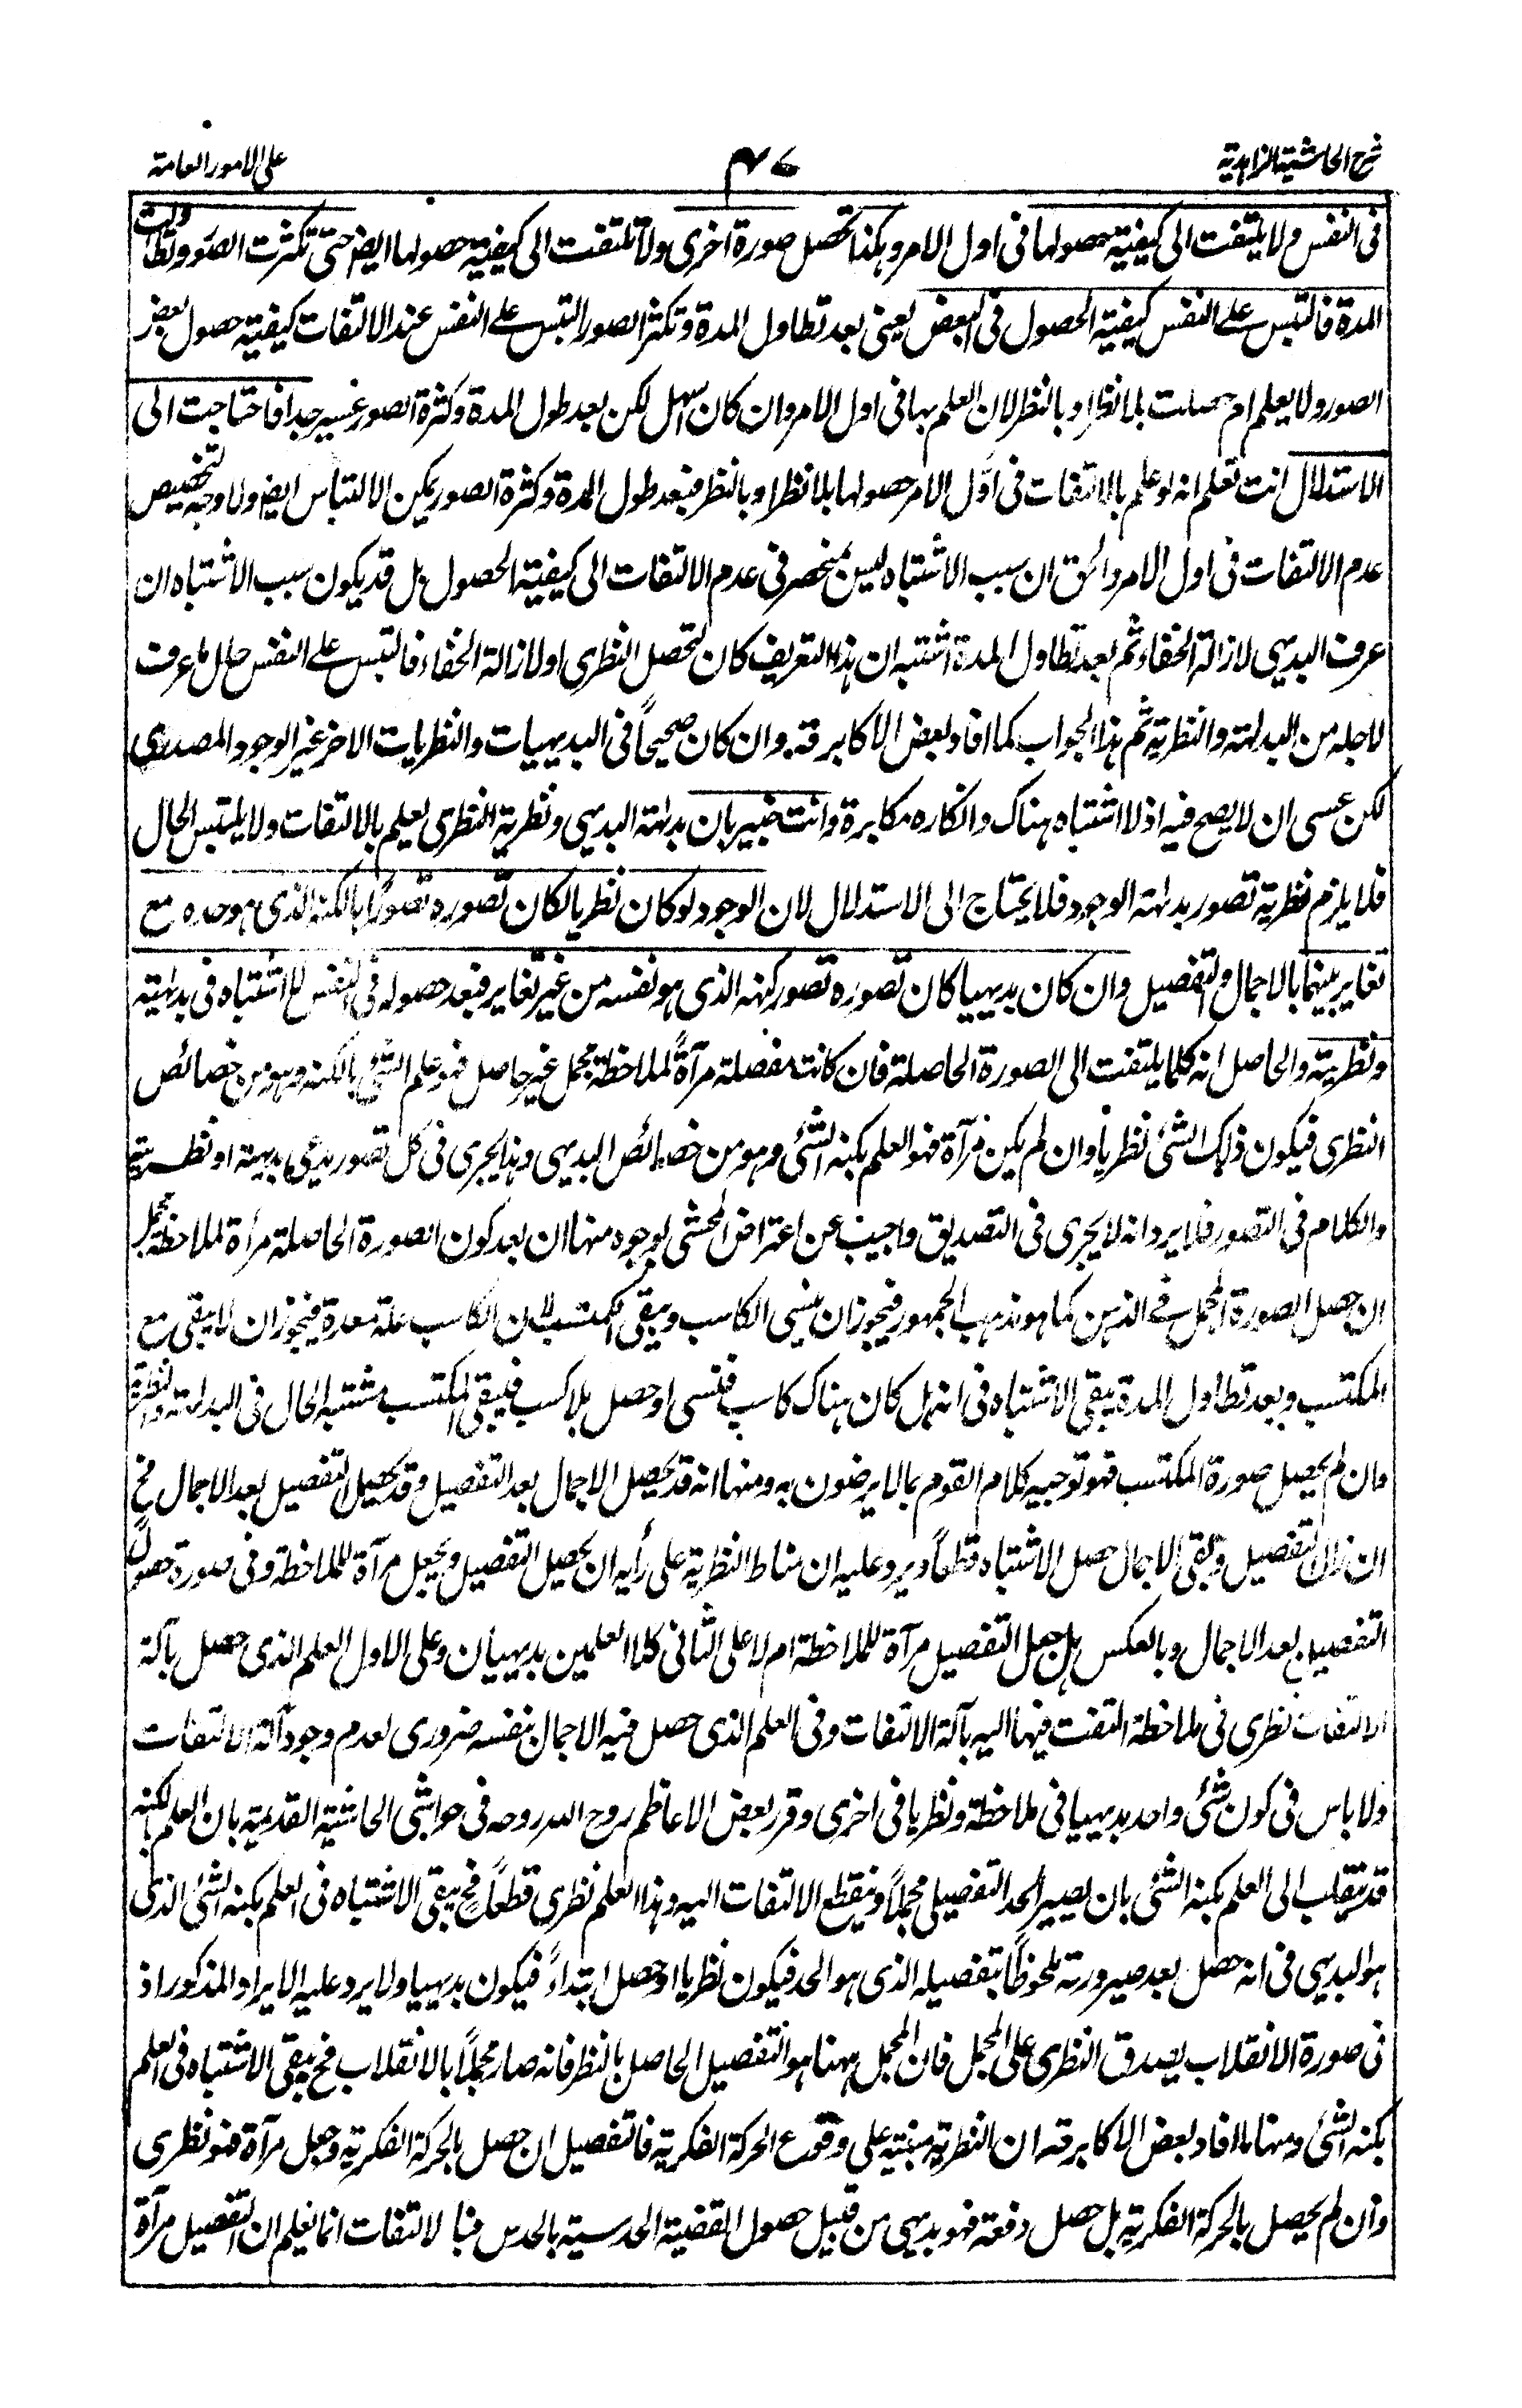 شرح الحاشية الزاهدية
٤٧
على الامور العامة
فى النفس ولا يلتفت الى كيفية حصولها فى اول الامر وهكذا تحصل صورة اخرى ولا تلتفت الى كيفية حصولها ايضا حتى تكثرت الصور وتطاولت
المدة فالتبس على النفس كيفية الحصول فى البعض يعنى بعد تطاول المدة وتكثر الصور التبس على النفس عند الالتفات كيفية حصول بعض
الصور ولا يعلم ام حصلت بلا نظر او بالنظر لان العلم بها فى اول الامر وان كان اسهل لكن بعد طول المدة وكثرة الصور عسير جدا فاحتاجت الى
الاستدلال انت تعلم انه لو علم بالالتفات فى اول الامر حصولها بلا نظر او بالنظر فبعد طول المدة وكثرة الصور يمكن الالتباس ايضا ولا وجه لتخصيص
عدم الالتفات فى اول الامر والحق ان سبب الاشتباه ليس بمنحصر فى عدم الالتفات الى كيفية الحصول بل قد يكون سبب الاشتباه ان
عرف البديهى لازالة الخفاء ثم بعد تطاول المدة اشتبه ان هذا التعريف كان لتحصل النظرى او لازالة الخفاء فالتبس على النفس حال ما عرف
لاجله من البداهة والنظرية ثم هذا الجواب كما افاد بعض الاكابر قه وان كان صحيحاً فى البديهيات والنظريات الاخر غير الوجود المصدرى
لكن عسى ان لا يصح فيه اذ لا اشتباه هناك وانكاره مكابرة وانت خبير بان بداهة البديهى ونظرية النظرى يعلم بالالتفات ولا يلتبس الحال
فلا يلزم نظرية تصور بداهة الوجود فلا يحتاج الى الاستدلال لان الوجود لو كان نظريا لكان تصوره تصوراً بالكنه الذى هو حده مع
تغاير بينهما بالاجمال والتفصيل وان كان بديهيا كان تصوره تصور كنهه الذى هو نفسه من غير تغاير فبعد حصوله فى النفس لا اشتباه فى بداهته
ونظريته والحاصل انه كلما يلتفت الى الصورة الحاصلة فان كانت مفصلة مرآةً لملاحظة مجمل غير حاصل فهو علم الشئ بالكنه وهو من خصائص
النظرى فيكون ذلك الشئ نظرياً وان لم يكن مرآة فهو العلم بكنه الشئ وهو من خصائص البديهى وهذا يجرى فى كل تصور يدعى بديهته او نظريته
والكلام فى التصور فلا يرد انه لا يجرى فى التصديق واجيب عن اعتراض المحشى بوجوه منها ان بعد كون الصورة الحاصلة مرآة لملاحظة مجمل
ان حصل الصورة المجمل فى الذهن كما هو مذهب الجمهور فيجوز ان ينسى الكاسب ويبقى المكتسب لان الكاسب علة معدة فيجوز ان لا يبقى مع
المكتسب وبعد تطاول المدة يبقى الاشتباه فى انه هل كان هناك كاسب فنسى او حصل بلا كسب فيبقى المكتسب مشتبه الحال فى البداهة والنظرية
وان لم يحصل صورة المكتسب فهو توجيه كلام القوم بما لا يرضون به ومنها انه قد يحصل الاجمال بعد التفصيل وقد يحصل التفصيل بعد الاجمال فح
ان زال التفصيل وبقى الاجمال حصل الاشتباه قطعاً ويرد عليه ان مناط النظرية على رأيه ان يحصل التفصيل ويجعل مرآة للملاحظة وفى صورة حصول
التفصيل بعد الاجمال وبالعكس هل جعل التفصيل مرآة للملاحظة ام لا على الثانى كلا العلمين بديهيان وعلى الاول العلم الذى حصل بآلة
الالتفات نظرى فى ملاحظة التفت فيها اليه بآلة الالتفات وفى العلم الذى حصل فيه الاجمال بنفسه ضرورى لعدم وجود آلة الالتفات
ولا باس فى كون شئ واحد بديهيا فى ملاحظة ونظريا فى اخرى وقرر بعض الاعاظم روح الله روحه فى حواشى الحاشية القديمة بان العلم بالكنه
قد ينقلب الى العلم بكنه الشئ بان يصير الحد التفصيلى مجملاً وينقطع الالتفات اليه وهذا العلم نظرى قطعاً فح يبقى الاشتباه فى العلم بكنه الشئ الذى
هو البديهى فى انه حصل بعد صيرورته ملحوظاً بتفصيله الذى هو الحد فيكون نظريا او حصل ابتداءً فيكون بديهيا ولا يرد عليه الايراد المذكور اذ
فى صورة الانقلاب يصدق النظرى على المجمل فان المجمل ههنا هو التفصيل الحاصل بالنظر فانه صار مجملاً بالانقلاب فح يبقى الاشتباه فى العلم
بكنه الشئ ومنها ما افاد بعض الاكابر قه ان النظرية مبنية على وقوع الحركة الفكرية فالتفصيل ان حصل بالحركة الفكرية وجعل مرآة فهو نظرى
وان لم يحصل بالحركة الفكرية بل حصل دفعة فهو بديهى من قبيل حصول القضية الحدسية بالحدس فبالالتفات انما يعلم ان التفصيل مرآة